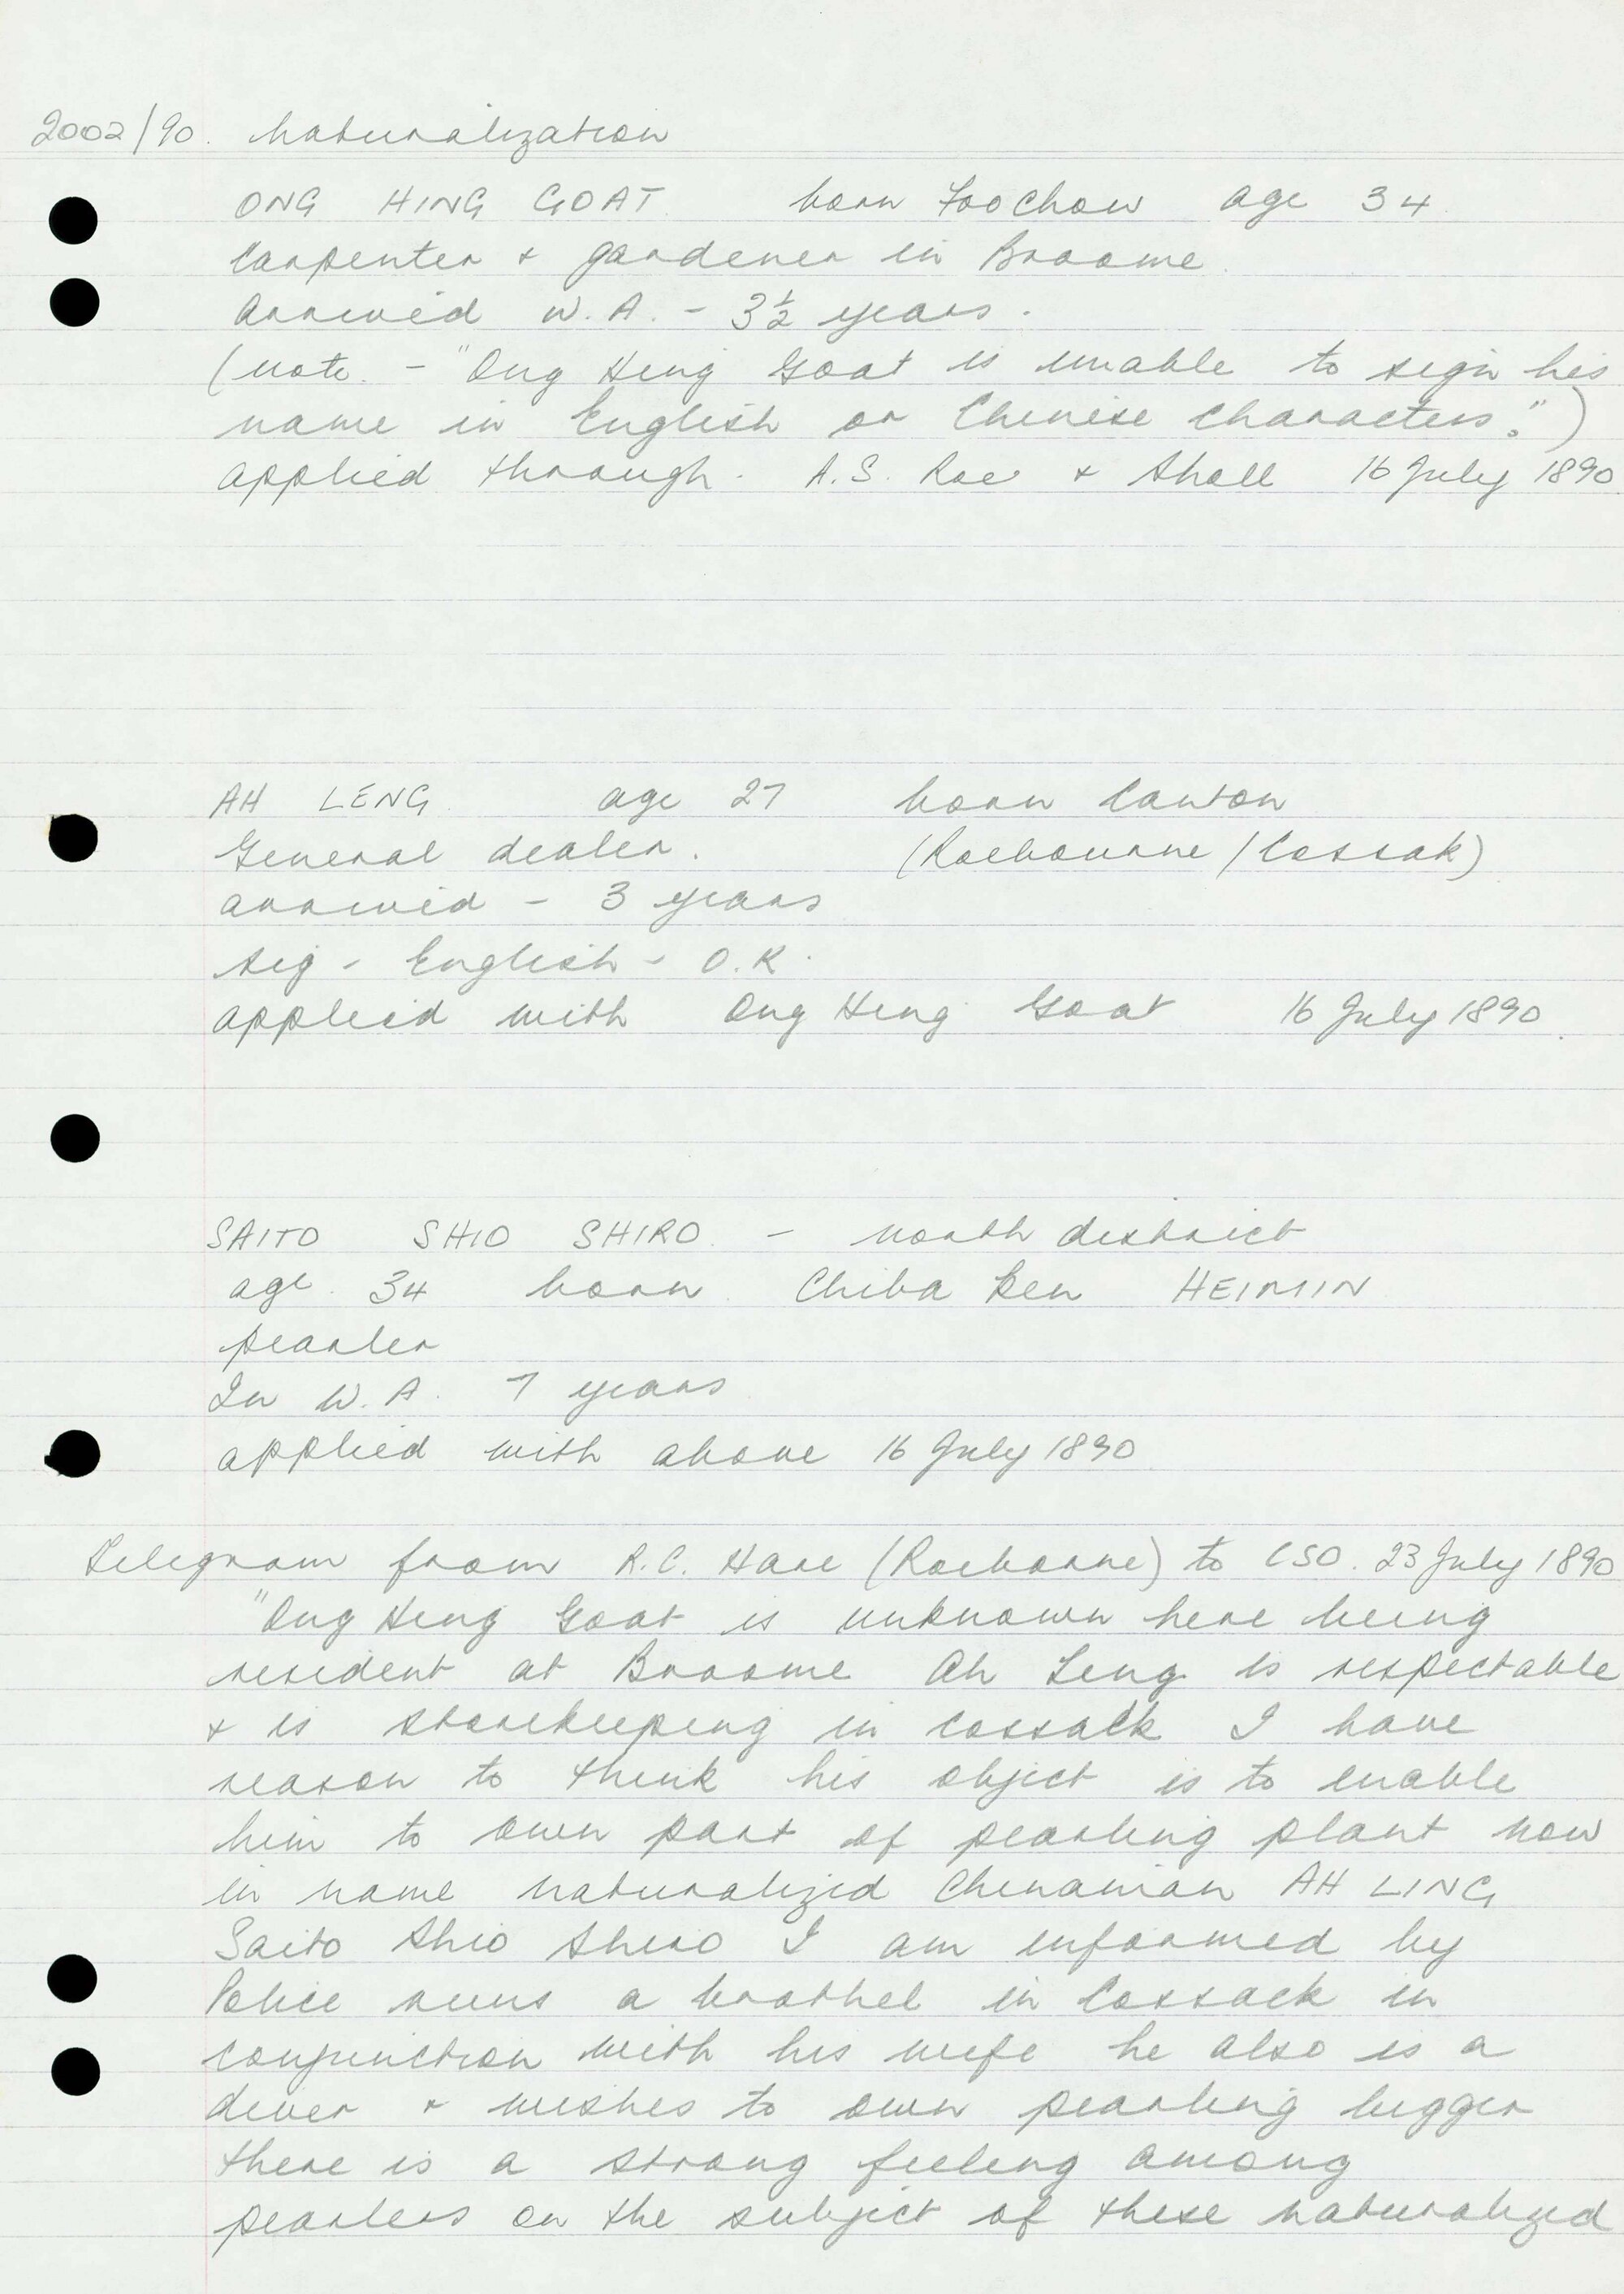 2002/90. Naturalization
ONG HING GOAT. born FooChow age 34.
Carpenter & gardener in Broome.
Arrived W.A. - 3½ years.
(note. - "Ong Hing Goat is unable to sign his
name in English or Chinese Characters.")
applied through. A.S. Roe & Sholl 16 July 1890.
AH LENG. age 27 born Canton
General dealer. (Roebourne / Cossak)
arrived - 3 years
sig - English - O.K.
applied with Ong Hing Goat 16 July 1890.
SAITO SHIO SHIRO. - north district
age. 34 born Chiba Ken HEIMIN
pearler
In W.A. 7 years
applied with above 16 July 1890
Telegram from R.C. Hare (Roeborne) to CSO. 23 July 1890
"Ong Hing Goat is unknown here being
resident at Broome Ah Leng is respectable
& is storekeeping in Cossack I have
reason to think his object is to enable
him to own part of pearling plant now
in name naturalized Chinaman AH LING
Saito Shio Shiro I am informed by
Police runs a brothel in Cossack in
conjunction with his wife he also is a
diver & wishes to own pearling lugger
there is a strong feeling among
pearlers on the subject of these naturalized